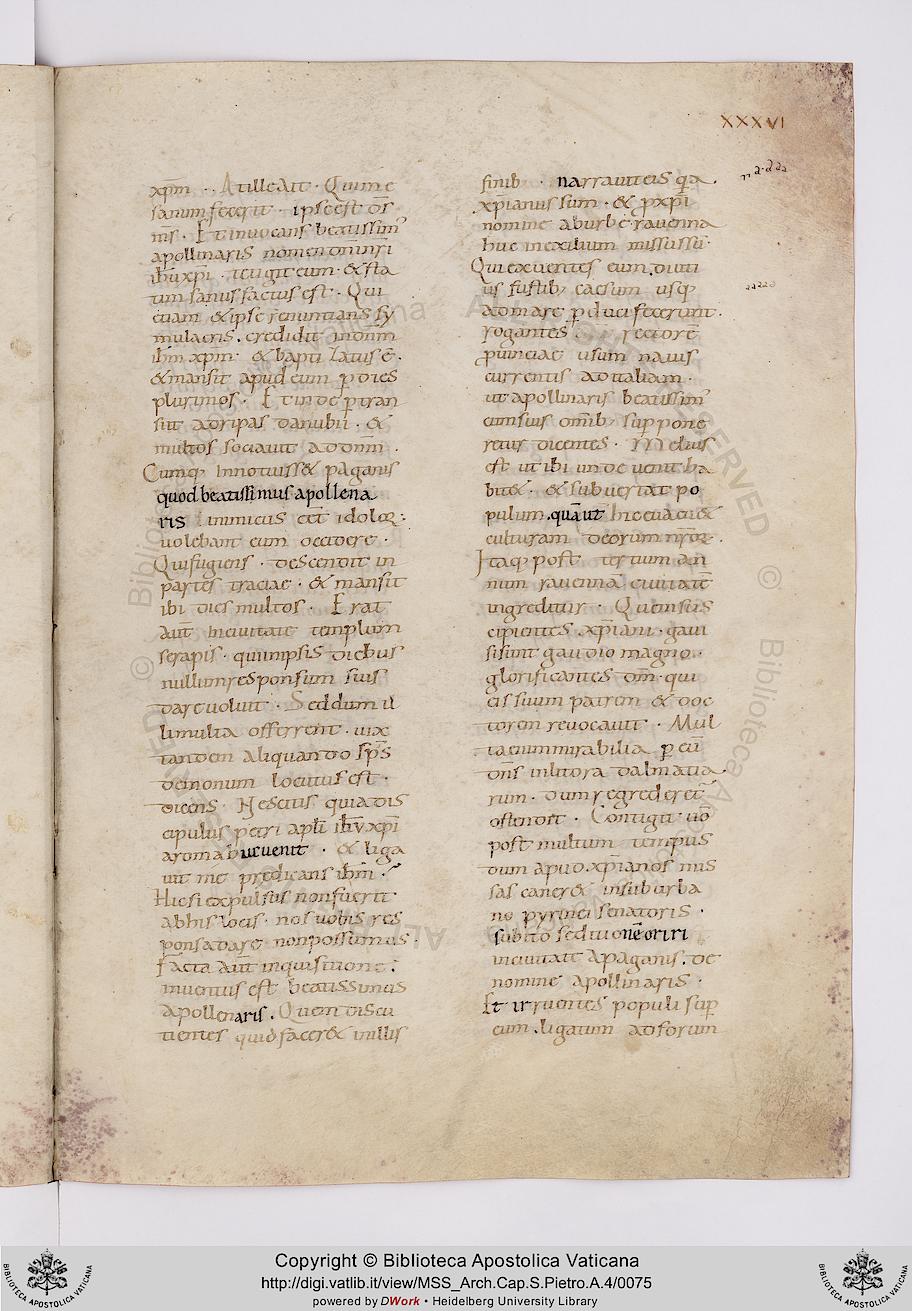 XXXVI
xp̄m · Atille ait · Qui me
sanum fecerit · ipse est d̄s
m̄s · Et invocans beatissim'
apollinaris nomen dn̄i n̄ri
ih̄u xp̄i · tetigit eum · & sta
tim sanus factus est · Qui
etiam & ipse renuntians sy
mulacris · credidit in dn̄m
ih̄m xp̄m · & bapti zatus ē ·
& mansit apud eum p dies
plurimos · Et inde p tran
siit ad ripas danubii · &
multos sociavit ad dn̄m ·
Cumq; innotuiss& paganis
quod beatissimus apollena
ris inimicus ēēt idolor :
volebant eum occidere ·
Qui fugiens · descendit in
partes traciae · & mansit
ibi dies multos · Erat
aūt in civitate templum
serapis · qui in ipsis diebus
nullum responsum suis
dare voluit · Sed dum il
li multa offerrent · vix
tandem aliquando sp̄s
demonum locutus est ·
dicens · Nescitis quia dis
cipulus petri apl̄i ih̄u xp̄i
a roma huc venit · & liga
vit me predicans ih̄m ·
Hic si expulsus non fuerit
ab his locis · nos vobis res
ponsa dare non possumus ·
Facta aūt inquisitione :
inventus est beatissimus
apollenaris · Quem discu
tientes quid facer& in illis
finib · narravit eis q̄a
xp̄ianus sum · & p xp̄i
nomine ab urbe ravenna
huc in exilium missus sū ·
Qui exuentes eum diuti
us fustib; caesum usq;
ad mare pduci fecerunt ·
rogantes rectorē
pvinciae usum navis
currentis ad italiam ·
ut apollinaris beatissim'
cum suis omib; suppone
retur dicentes · Melius
est ut ibi unde venit ha
bit& · & subvertat po
pulum · quā ut hic evacu&
culturam deorum n̄ror ·
Itaq; post tertium an
num ravennā civitatē
ingreditur · Quem sus
cipientes xp̄iani · gavi
si sunt gaudio magno ·
glorificantes dm̄ · qui
eis suum patrem & doc
torem revocavit · Mul
ta enim mirabilia p eū
dn̄s in litora dalmatia
rum · dum regrederet'
ostendit · Contigit vō
post multum tempus
dum apud xp̄ianos mis
sas caner& in suburba
no pyrinci senatoris ·
subito seditionē oriri
in civitate a paganis · de
nomine apollinaris ·
Et irruentes populi sup
eum · ligatum ad forum
Copyright © Biblioteca Apostolica Vaticana
http://digi.vatlib.it/view/MSS_Arch.Cap.S.Pietro.A.4/0075
powered by DWork • Heidelberg University Library
BIBLIOTECA APOSTOLICA VATICANA
BIBLIOTECA APOSTOLICA VATICANA